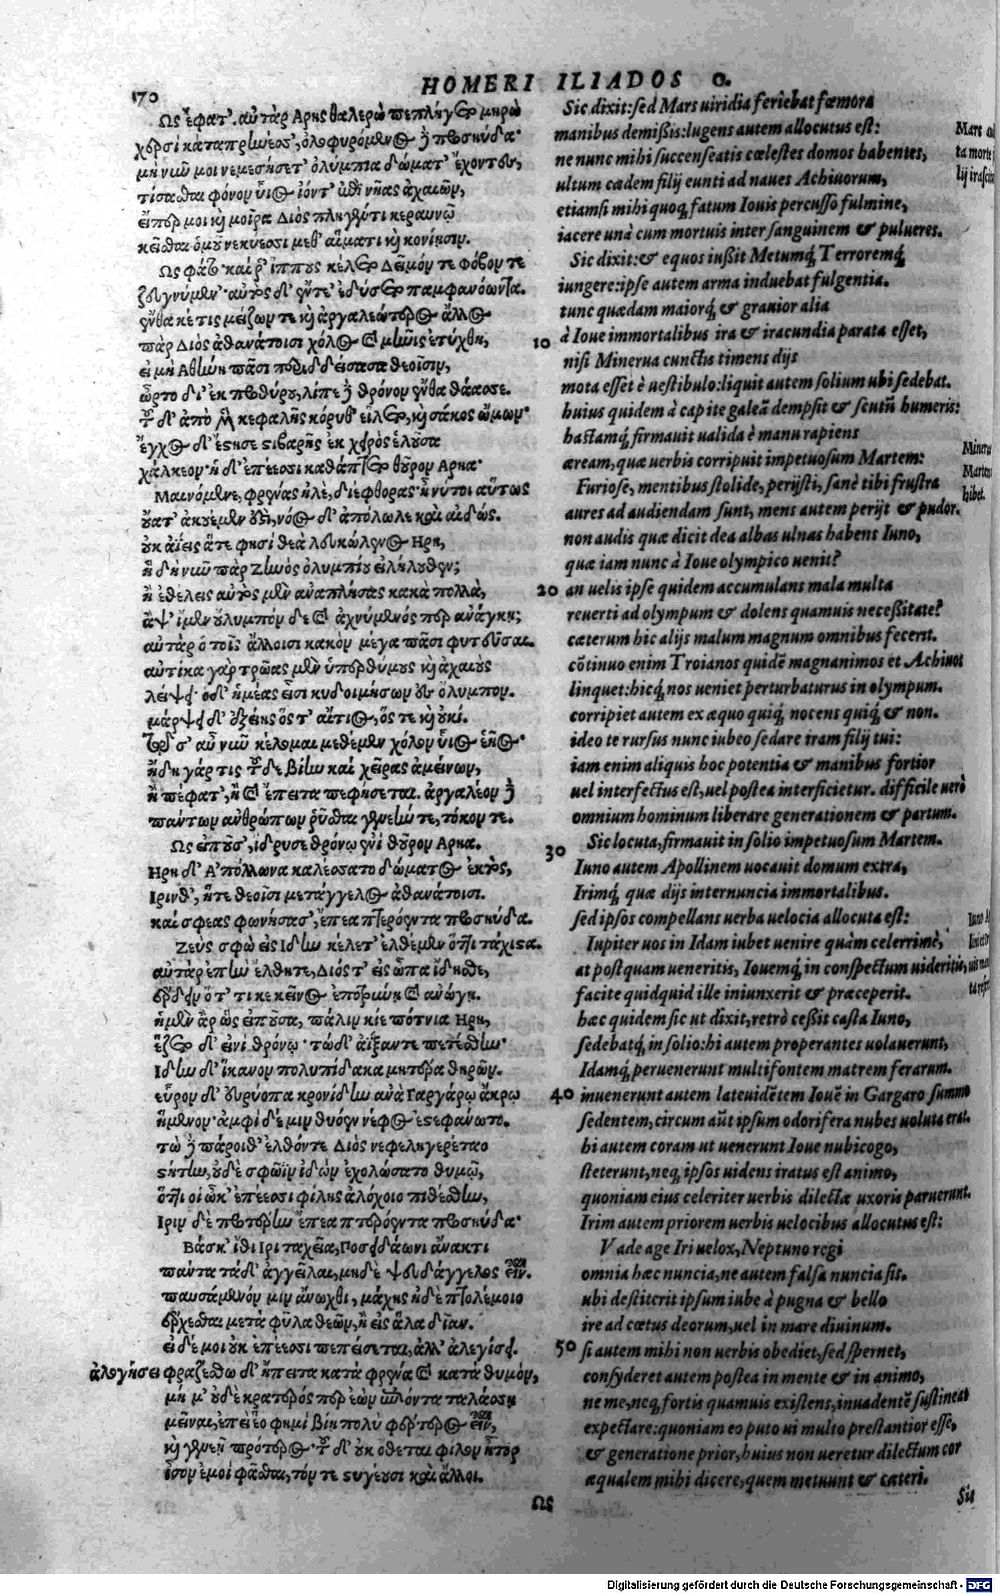 170
HOMERI ILIADOS O.
Ως ἔφατ'. αὐτὰρ Αρης θαλερὼ πεπλήγετο μηρὼ
χερσὶ καταπρηνέσσ', ὀλοφυρόμενος δὲ προσηύδα·
μὴ νῦν μοι νεμεσήσετ' ὀλύμπια δώματ' ἔχοντες,
τίσασθαι φόνον ὗιος ἰόντ' ἐπὶ νῆας ἀχαιῶν,
εἴπερ μοι κὴ μοῖρα Διὸς πληγέντι κεραυνῷ
κεῖσθαι ὁμοῦ νεκύεσσι μεθ' αἵματι κὴ κονίησιν.
Ως φάτο· καί ῥ' ἵππους κέλετο Δεῖμόν τε φόβον τε
ζευγνύμεν'· αὐτὸς δ' ἔντε' ἐδύσετο παμφανόωντα.
ἔνθα κέ τις μείζων τε κὴ ἀργαλεώτερος ἄλλος
πὰρ Διὸς ἀθανάτοισι χόλος καὶ μῆνις ἐτύχθη,
εἰ μὴ Αθήνη πᾶσι περιδδείσασα θεοῖσιν,
ὦρτο δι' ἐκ προθύρου, λίπε δὲ θρόνον ἔνθα θάασσε.
τοῦ δ' ἀπὸ μὲν κεφαλῆς κόρυθ' εἵλετο, κὴ σάκος ὤμων·
ἔγχος δ' ἔστησε στιβαρῆς ἐκ χειρὸς ἑλοῦσα
χάλκεον· ἡ δ' ἐπέεσσι καθάπτετο θοῦρον Αρηα·
Μαινόμενε, φρένας ἠλὲ, διέφθορας· ἦ νύ τοι αὔτως
οὔατ' ἀκουέμεν ἐστὶ, νόος δ' ἀπόλωλε καὶ αἰδώς.
οὐκ ἀΐεις ἅτε φησὶ θεὰ λευκώλενος Ηρη,
ἣ δὴ νῦν πὰρ Ζηνὸς ὀλυμπίου εἰλήλουθεν;
ἦ ἐθέλεις αὐτὸς μὲν ἀναπλήσας κακὰ πολλὰ,
ἂψ ἴμεν οὔλυμπόν δε καὶ ἀχνύμενός περ ἀνάγκη;
αὐτὰρ ὁ τοῖς ἄλλοισι κακὸν μέγα πᾶσι φυτεῦσαι.
αὐτίκα γὰρ τρῶας μὲν ὑπερθύμους κὴ ἀχαιοὺς
λείψει· ὁ δ' ἡμέας εἶσι κυδοιμήσων ἐς ὄλυμπον.
μάρψει δ' ἑξείης ὅς τ' αἴτιος, ὅς τε κὴ οὐκί.
τῷ σ' αὖ νῦν κέλομαι μεθέμεν χόλον ὗιος ἑῆος·
ἤδη γάρ τις τοῦ δε βίην καὶ χεῖρας ἀμείνων,
ἢ πέφατ', ἢ καὶ ἔπειτα πεφήσεται. ἀργαλέον δὲ
πάντων ἀνθρώπων ῥῦσθαι γενεήν τε, τόκον τε.
Ως εἰποῦσ', ἵδρυσε θρόνῳ ἔνι θοῦρον Αρηα.
Ηρη δ' Απόλλωνα καλέσσατο δώματος ἐκτὸς,
Ιρίνθ', ἥτε θεοῖσι μετάγγελος ἀθανάτοισι.
καί σφεας φωνήσασ', ἔπεα πτερόεντα προσηύδα.
Ζεὺς σφὼ εἰς Ιδην κέλετ' ἐλθέμεν ὅττι τάχιστα.
αὐτὰρ ἐπὴν ἔλθητε, Διός τ' εἰς ὦπα ἴδησθε,
ἔρδειν ὅτ' τι κε κεῖνος ἐποτρύνῃ καὶ ἀνώγῃ.
ἡ μὲν ἄρ ὣς εἰποῦσα, πάλιν κίε πότνια Ηρη,
ἕζετο δ' ἐνὶ θρόνῳ· τὼ δ' ἀΐξαντε πετέσθην·
Ιδην δ' ἵκανον πολυπίδακα μητέρα θηρῶν.
εὗρον δ' εὐρύοπα κρονίδην ἀνὰ Γαργάρῳ ἄκρῳ
ἥμενον· ἀμφὶ δέ μιν θυόεν νέφος ἐστεφάνωτο.
τὼ δὲ πάροιθ' ἐλθόντε Διὸς νεφεληγερέταο
στήτην, οὐδὲ σφωῒν ἰδὼν ἐχολώσατο θυμῷ,
ὅττι οἱ ὦκ' ἐπέεσσι φίλης ἀλόχοιο πιθέσθην,
Ιριν δὲ προτέρην ἔπεα πτερόεντα προσηύδα·
Βάσκ' ἴθι Ιρι ταχεῖα, Ποσειδάωνι ἄνακτι
πάντα τάδ' ἀγγεῖλαι, μηδὲ ψευδάγγελος εἶναι.
παυσάμενόν μιν ἄνωχθι, μάχης ἠδὲ πτολέμοιο
ἔρχεσθαι μετὰ φῦλα θεῶν, ἢ εἰς ἅλα δῖαν.
εἰ δέ μοι οὐκ ἐπέεσσι πεπείσεται, ἀλλ' ἀλεγίσει.
ἀλογήσει φραζέσθω δ' ἤπειτα κατὰ φρένα καὶ κατὰ θυμὸν,
μή μ' οὐδὲ κρατερός περ ἐὼν ἐπιόντα ταλάσσῃ
μεῖναι, ἐπεὶ ἕο φημὶ βίῃ πολὺ φέρτερος εἶναι,
κὴ γενεῇ πρότερος· τοῦ δ' οὐκ ὄθεται φίλον ἦτορ
ἶσον ἐμοὶ φᾶσθαι, τόν τε στυγέουσι καὶ ἄλλοι.
Ως
Sic dixit: sed Mars uiridia feriebat fœmora
manibus demißis: lugens autem allocutus est:
ne nunc mihi succenseatis cœlestes domos habentes,
ultum cædem filij eunti ad naues Achiuorum,
etiamsi mihi quoq; fatum Iouis percusso fulmine,
iacere unà cum mortuis inter sanguinem & pulueres.
Sic dixit: & equos iußit Metumq́; Terroremq́;
iungere: ipse autem arma induebat fulgentia.
tunc quædam maiorq́; & grauior alia
10 à Ioue immortalibus ira & iracundia parata esset,
nisi Minerua cunctis timens dijs
mota esset è uestibulo: liquit autem solium ubi sedebat.
huius quidem à capite galeā dempsit & scutū humeris:
hastamq́; firmauit ualida è manu rapiens
æream, quæ uerbis corripuit impetuosum Martem:
Furiose, mentibus stolide, perijsti, sanè tibi frustra
aures ad audiendam sunt, mens autem perijt & pudor.
non audis quæ dicit dea albas ulnas habens Iuno,
quæ iam nunc à Ioue olympico uenit?
20 an uelis ipse quidem accumulans mala multa
reuerti ad olympum & dolens quamuis neceßitate?
cæterum hic alijs malum magnum omnibus fecerit.
cōtinuo enim Troianos quidē magnanimos et Achiuos
linquet: hicq́; nos ueniet perturbaturus in olympum.
corripiet autem ex æquo quiq́; nocens quiq́; & non.
ideo te rursus nunc iubeo sedare iram filij tui:
iam enim aliquis hoc potentia & manibus fortior
uel interfectus est, uel postea interficietur. difficile uerò
omnium hominum liberare generationem & partum.
30 Sic locuta, firmauit in solio impetuosum Martem.
Iuno autem Apollinem uocauit domum extra,
Irimq́; quæ dijs internuncia immortalibus.
sed ipsos compellans uerba uelocia allocuta est:
Iupiter uos in Idam iubet uenire quàm celerrimè,
at postquam ueneritis, Iouemq́; in conspectum uideritis,
facite quidquid ille iniunxerit & præceperit.
hæc quidem sic ut dixit, retrò ceßit casta Iuno,
sedebatq́; in solio: hi autem properantes uolauerunt,
Idamq́; peruenerunt multifontem matrem ferarum.
40 inuenerunt autem lateuidētem Iouē in Gargaro summo
sedentem, circum aūt ipsum odorifera nubes uoluta erat.
hi autem coram ut uenerunt Ioue nubicogo,
steterunt, neq; ipsos uidens iratus est animo,
quoniam eius celeriter uerbis dilectæ uxoris paruerunt.
Irim autem priorem uerbis uelocibus allocutus est:
Vade age Iri uelox, Neptuno regi
omnia hæc nuncia, ne autem falsa nuncia sis.
ubi destiterit ipsum iube à pugna & bello
ire ad cœtus deorum, uel in mare diuinum.
50 si autem mihi non uerbis obediet, sed spernet,
consyderet autem postea in mente & in animo,
ne me, neq; fortis quamuis existens, inuadentē sustineat
expectare: quoniam eo puto ui multo prestantior esse,
& generatione prior, huius non ueretur dilectum cor
æqualem mihi dicere, quem metuunt & cæteri.
Sic
Mars
ta morte
lij irasci
Minerua
Martem
hibet.
Iuno
Digitalisierung gefördert durch die Deutsche Forschungsgemeinschaft - DFG